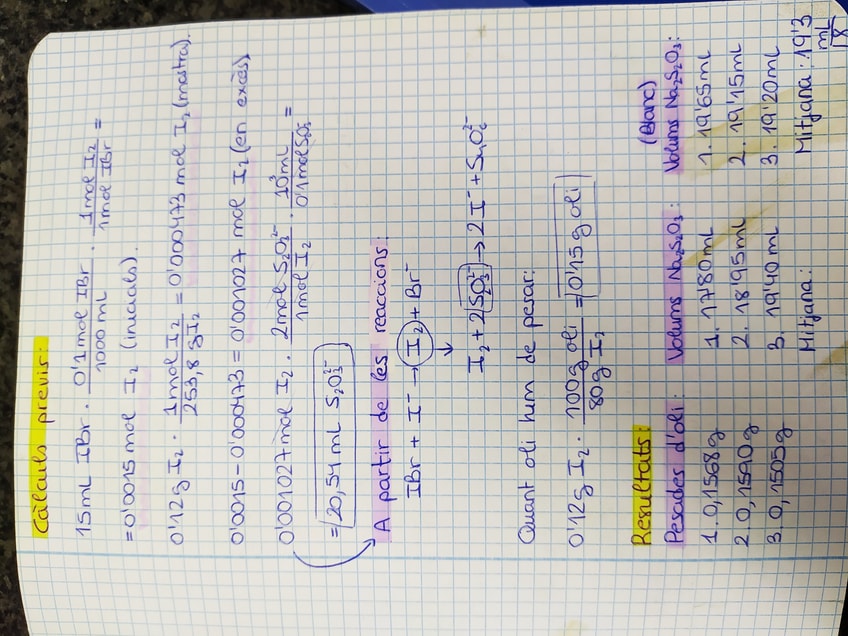 Càlculs previs:
15ml IBr · 0'1mol IBr / 1000 ml · 1mol I₂ / 1mol IBr =
= 0'0015 mol I₂ (inicials).
0'12g I₂ · 1mol I₂ / 253,8 g I₂ = 0'000473 mol I₂ (mostra).
0'0015 - 0'000473 = 0'001027 mol I₂ (en excés)
0'001027mol I₂ · 2mol S₂O₃²⁻ / 1mol I₂ · 10³ml / 0'1mol S₂O₃²⁻ =
= 20,54 ml S₂O₃²⁻
A partir de les reaccions:
IBr + I⁻ → I₂ + Br⁻
↓
I₂ + 2 S₂O₃²⁻ → 2 I⁻ + S₄O₆²⁻
Quant oli hem de pesar:
0'12g I₂ · 100g oli / 80g I₂ = 0'15g oli
Resultats:
Pesades d'oli: Volums Na₂S₂O₃: (Blanc) Volums Na₂S₂O₃:
1. 0,1568g 1. 17'80ml 1. 19'65ml
2. 0,1590g 2. 18'95ml 2. 19'15ml
3. 0,1505g 3. 19'40ml 3. 19'20ml
Mitjana: Mitjana: 19'3 ml